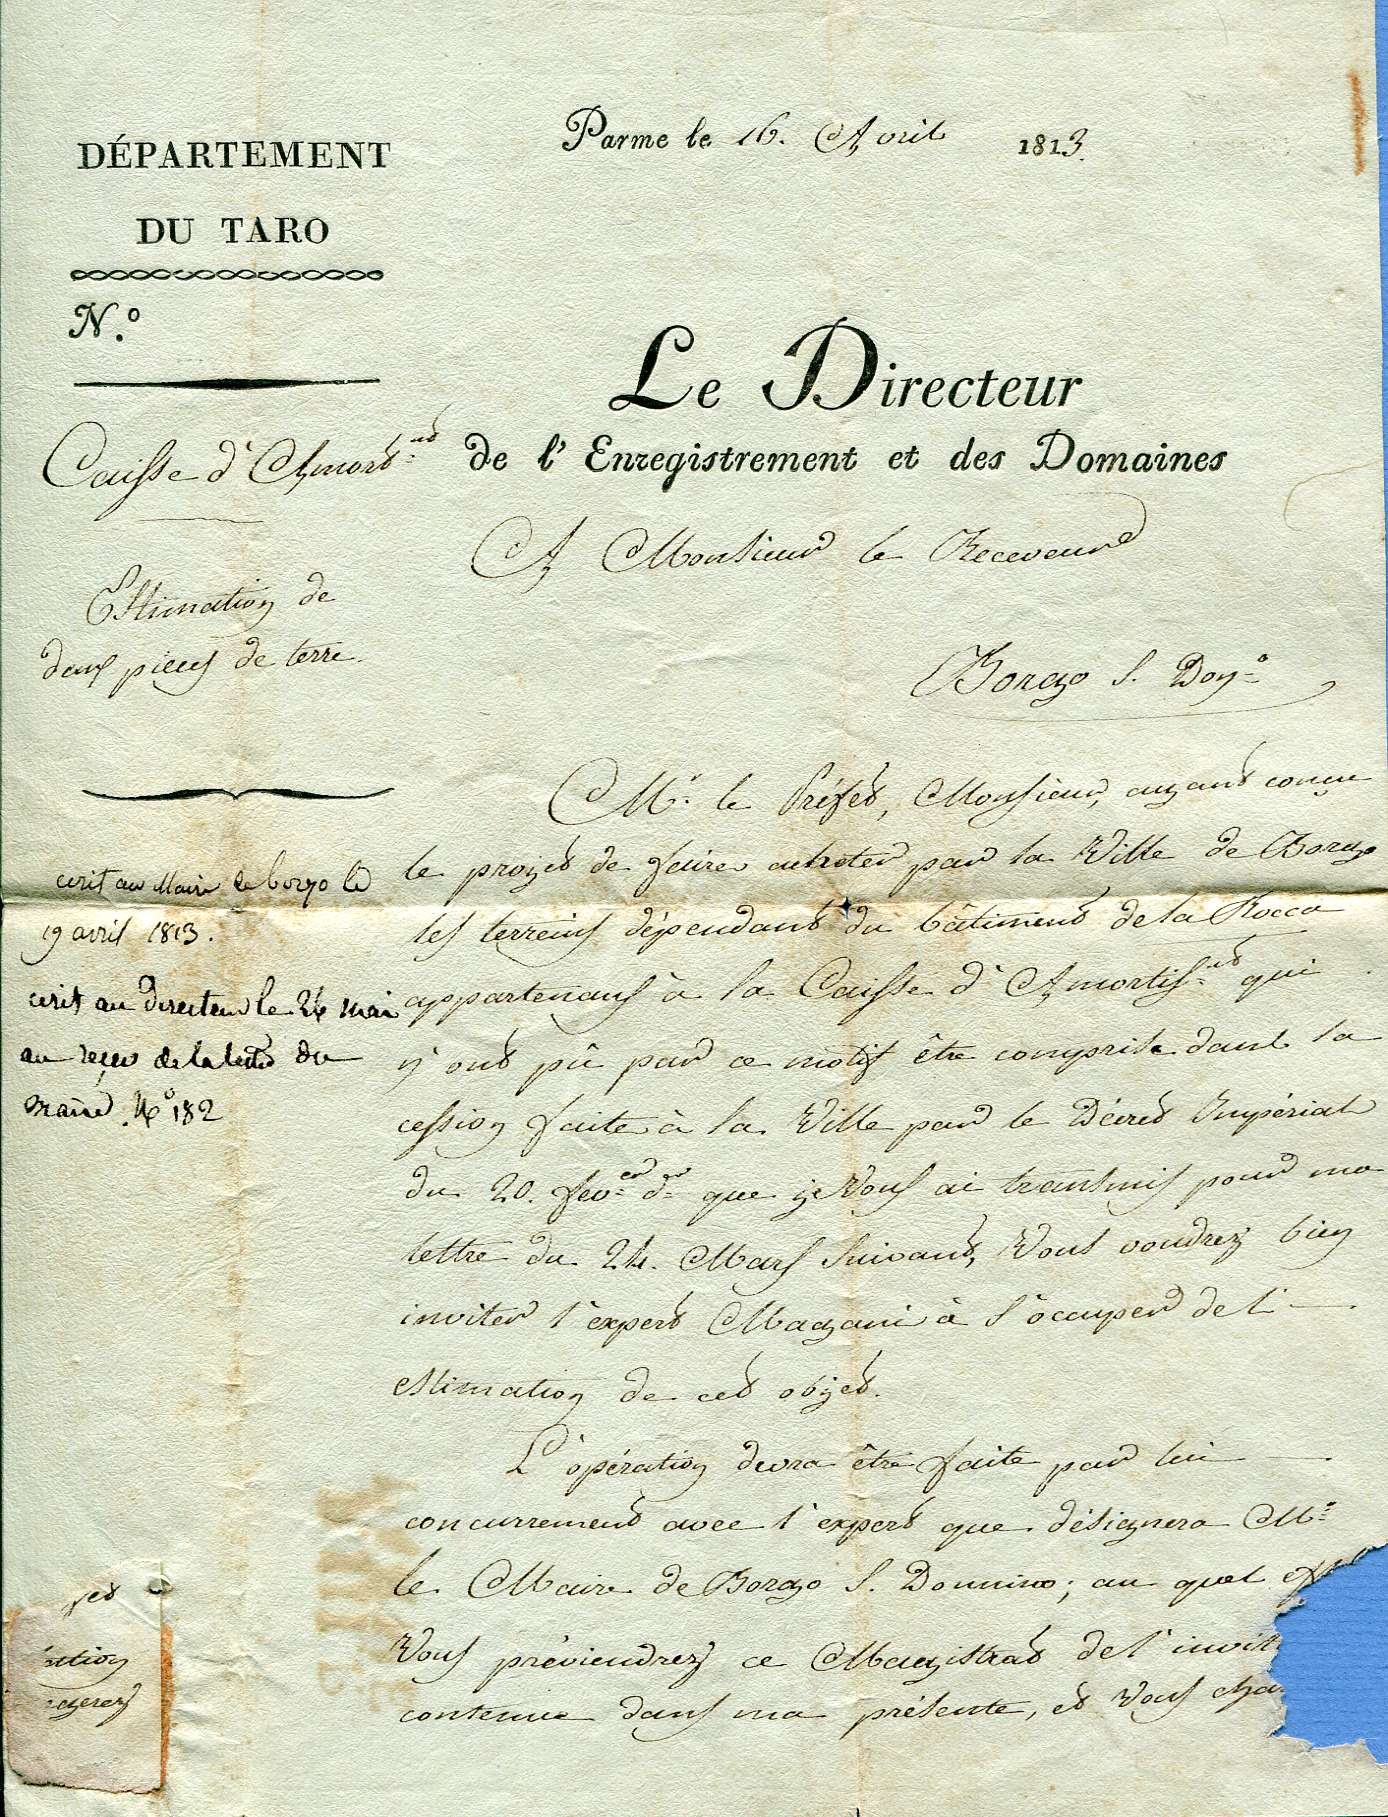 Parme le 16. Avril 1813.
DÉPARTEMENT
DU TARO
N.º
Le Directeur
de l' Enregistrement et des Domaines
Caisse d' Amort.nt
Estimation de
deux pieces de terre.
A Monsieur le Receveur
Borgo S. Don.º
Mr. le Préfet, Monsieur, ayant conçu
le projet de faire acheter par la Ville de Borgo
les terreins dépendant du bâtiment de la Rocca
appartenans à la Caisse d' Amortis.nt qui
n' ont pû par ce motif être comprise dans la
cession faite à la Ville par le Décret Impérial
du 20. fev.er d.er que je vous ai transmis pour ma
lettre du 24. Mars suivant, vous voudrez bien
inviter l' expert Magani à s' occuper de l'
estimation de cet objet.
L' opération devra être faite par lui
concurrement avec l' expert que désignera Mr.
le Maire de Borgo S. Donnino; au quel
vous préviendrez ce Magistrat de l' invit
contenue dans ma présente, et vous cha
ecrit au Maire de borgo le
19 avril 1813.
ecrit au directeur le 26 mai
au reçu de la lettre du
maire. Nº 182